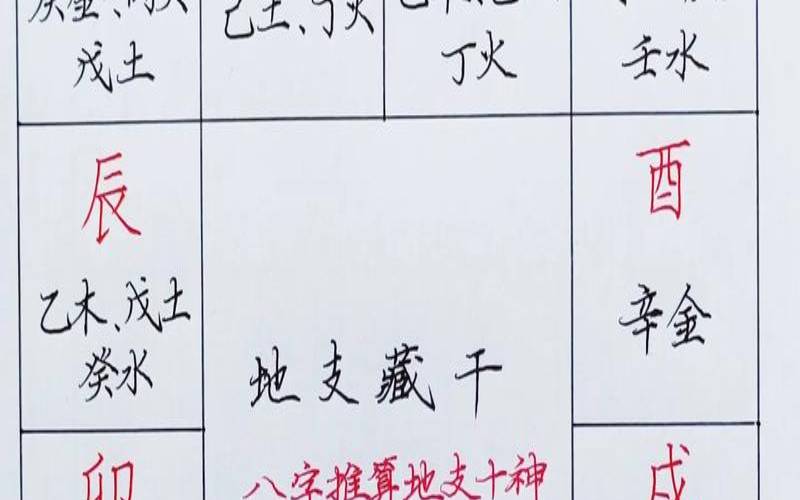 庚金、丙火
戊土
己土、丁火
丁火
壬水
辰
乙木、戊土
癸水
酉
辛金
地支藏干
卯
八字推算地支十神
戌